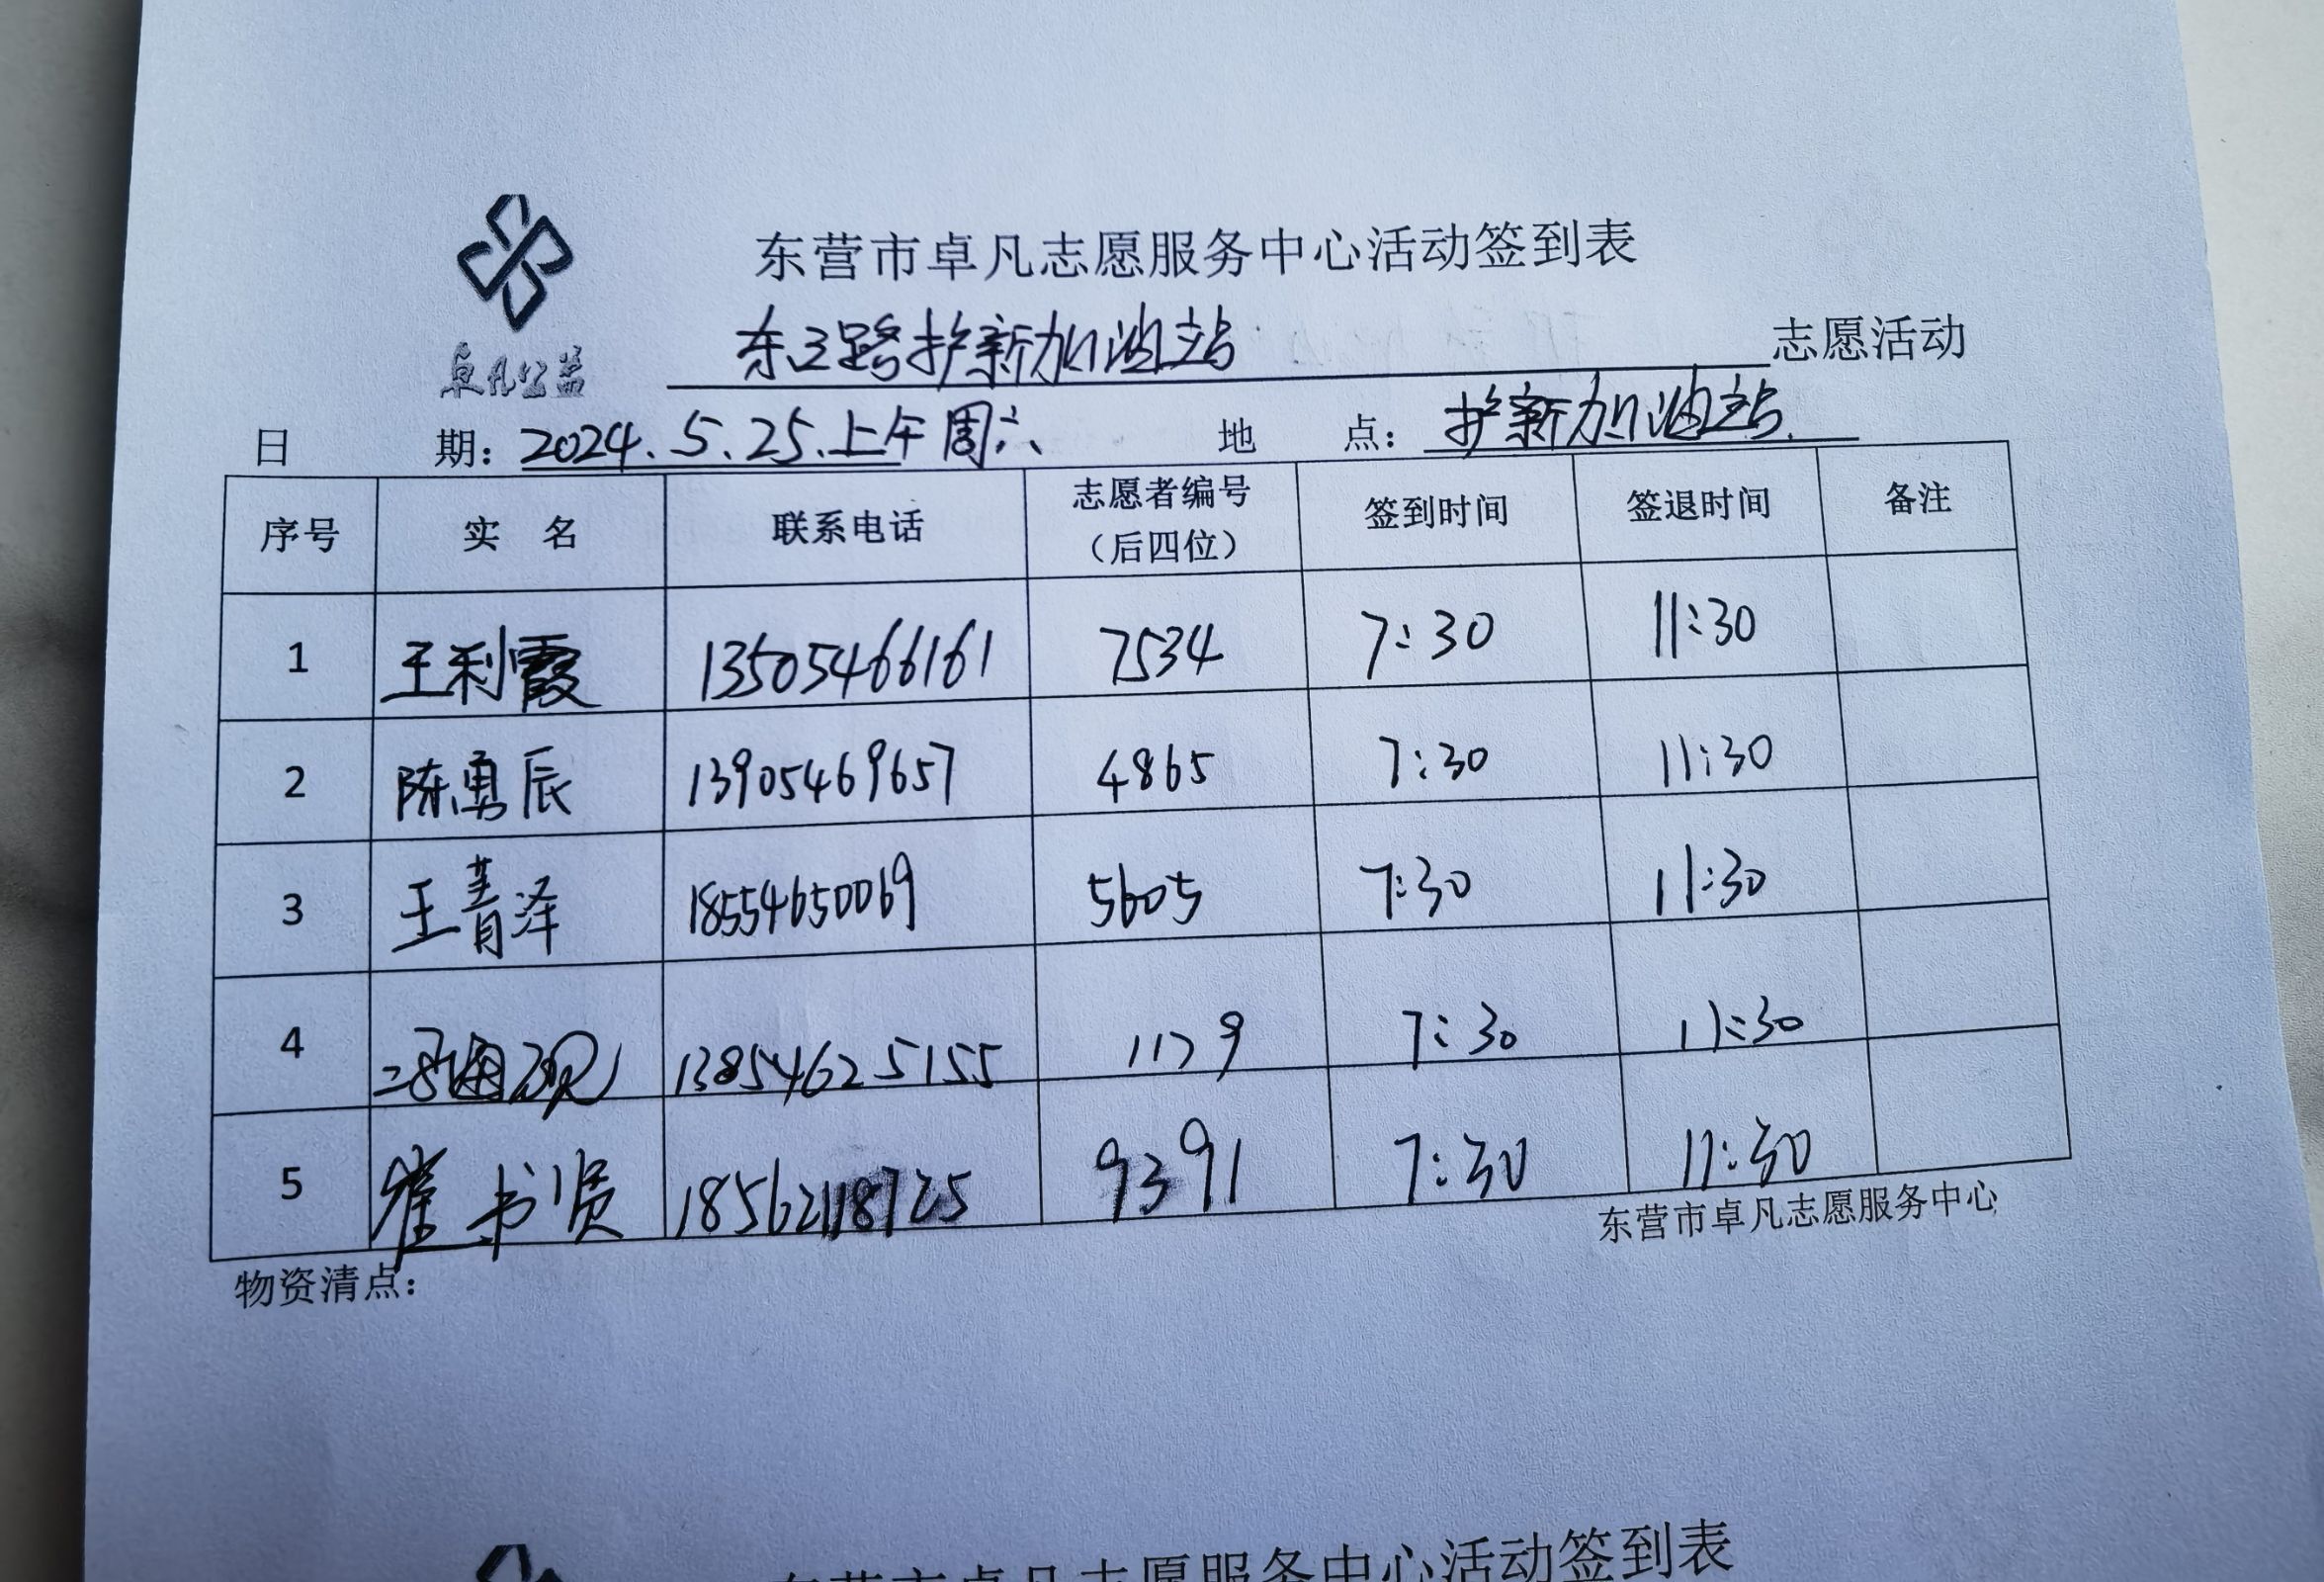 东营市卓凡志愿服务中心活动签到表
卓凡公益
东三路护新加油站 志愿活动
日 期：2024.5.25.上午周六 地 点：护新加油站.
序号 实 名 联系电话 志愿者编号（后四位） 签到时间 签退时间 备注
1 王利霞 13505466161 7534 7:30 11:30
2 陈勇辰 13905469657 4865 7:30 11:30
3 王菁泽 18554650069 5605 7:30 11:30
4 13854625155 1179 7:30 11:30
5 崔书贤 18562118725 9391 7:30 11:30
东营市卓凡志愿服务中心
物资清点：
东营市卓凡志愿服务中心活动签到表